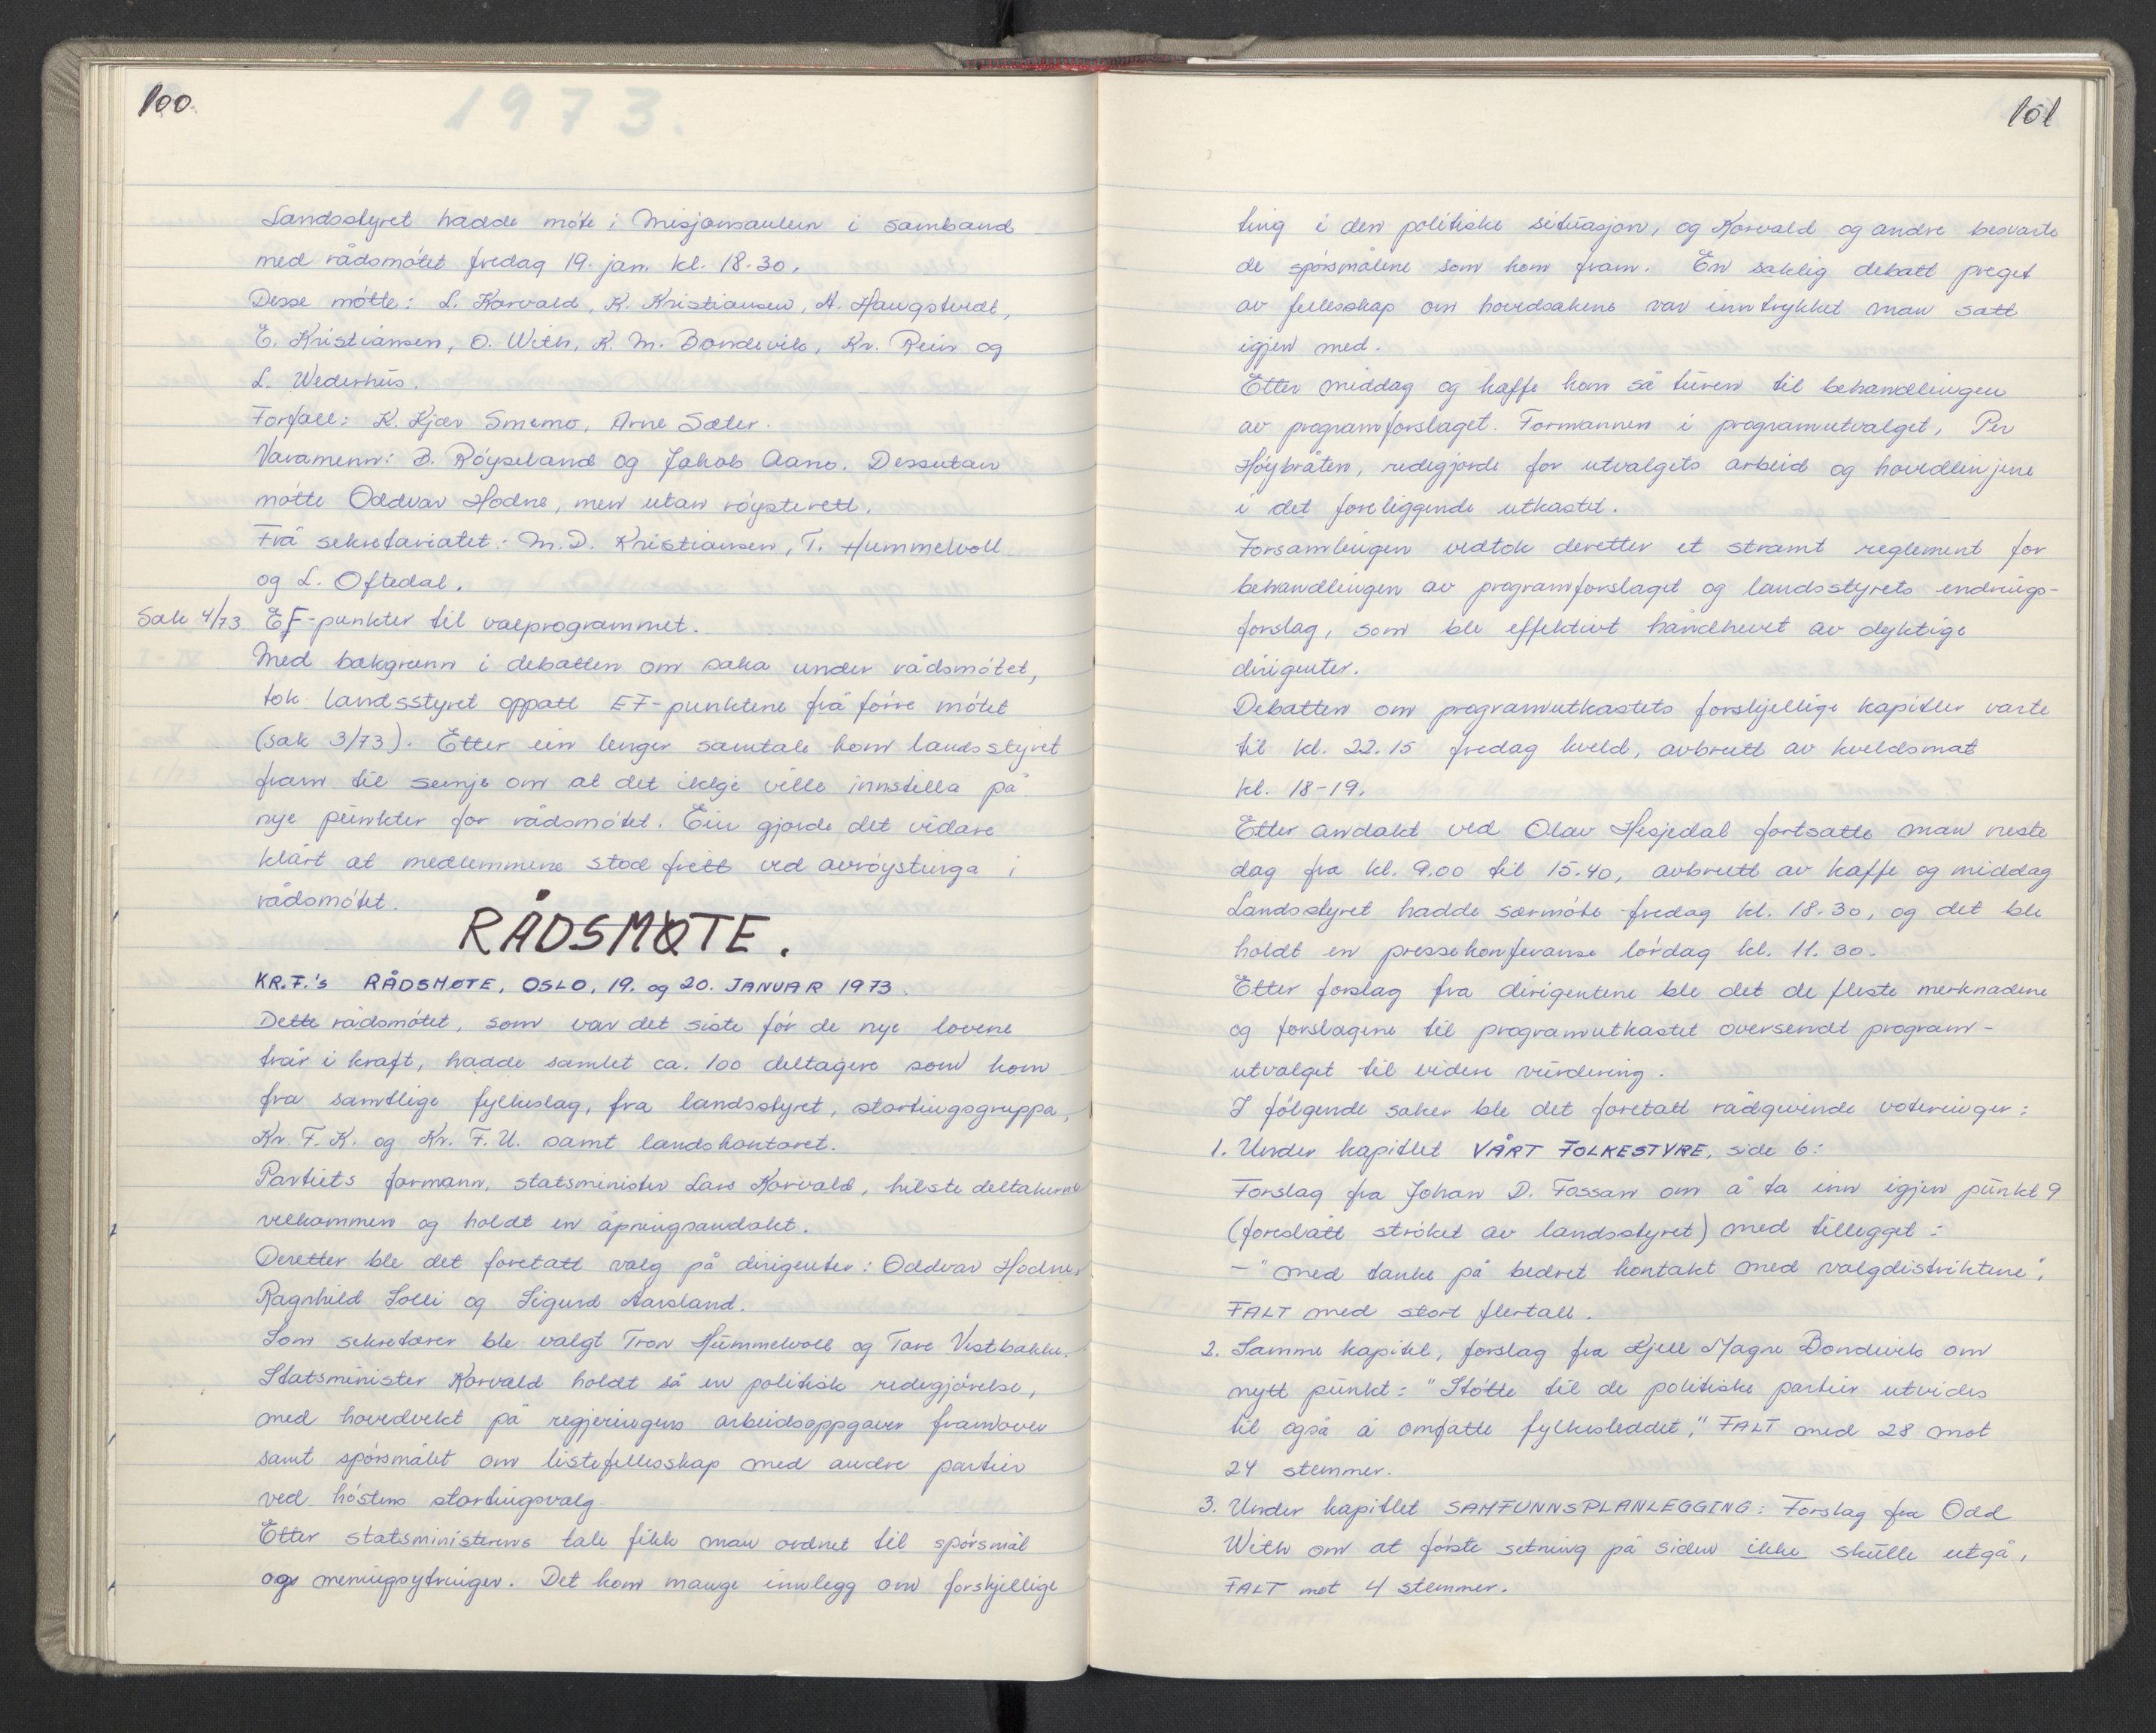 100.
1973.
Landsstyret hadde møte i Misjonsaulen i samband
med rådsmøtet fredag 19. jan. kl. 18.30.
Desse møtte: L. Korvald, K. Kristiansen, A. Haugstvedt,
E. Kristiansen, O. With, K. M. Bondevik, Kr. Rein og
L. Wederhus.
Forfall: K. Kjær Smemo, Arne Sæter.
Varamenn: B. Røyseland og Jakob Aano. Dessutan
møtte Oddvar Hodne, men utan røysterett.
Frå sekretariatet: M.D. Kristiansen, T. Hummelvoll
og L. Oftedal.
Sak 4/73 EF-punkter til valprogrammet.
Med bakgrunn i debatten om saka under rådsmøtet,
tok landsstyret oppatt EF-punktene frå førre møtet
(sak 3/73). Etter ein lenger samtale kom landsstyret
fram til semje om at det ikkje ville innstilla på
nye punkter for rådsmøtet. Ein gjorde det vidare
klårt at medlemmene stod fritt ved avrøystinga i
rådsmøtet.
RÅDSMØTE.
KR.F.'s RÅDSMØTE, OSLO, 19. og 20. JANUAR 1973.
Dette rådsmøtet, som var det siste før de nye lovene
trår i kraft, hadde samlet ca. 100 deltagere som kom
fra samtlige fylkeslag, fra landsstyret, stortingsgruppa,
Kr. F. K. og Kr. F. U. samt landskontoret.
Partiets formann, statsminister Lars Korvald, hilste deltakerne
velkommen og holdt en åpningsandakt.
Deretter ble det foretatt valg på dirigenter: Oddvar Hodne,
Ragnhild Solli og Sigurd Aarsland.
Som sekretærer ble valgt Tron Hummelvoll og Tore Vestbakke.
Statsminister Korvald holdt så en politisk redegjørelse,
med hovedvekt på regjeringens arbeidsoppgaver framover
samt spørsmålet om listefellesskap med andre partier
ved høstens stortingsvalg.
Etter statsministerens tale fikk man ordnet til spørsmål
og meningsytringer. Det kom mange innlegg om forskjellige
101
ting i den politiske situasjon, og Korvald og andre besvarte
de spørsmålene som kom fram. En saklig debatt preget
av fellesskap om hovedsakene var inntrykket man satt
igjen med.
Etter middag og kaffe kom så turen til behandlingen
av programforslaget. Formannen i programutvalget, Per
Høybråten, redegjorde for utvalgets arbeid og hovedlinjene
i det foreliggende utkastet.
Forsamlingen vedtok deretter et stramt reglement for
behandlingen av programforslaget og landsstyrets endrings-
forslag, som ble effektivt håndhevet av dyktige
dirigenter.
Debatten om programutkastets forskjellige kapitler varte
til kl. 22.15 fredag kveld, avbrutt av kveldsmat
kl. 18-19.
Etter andakt ved Olav Hesjedal fortsatte man neste
dag fra kl. 9.00 til 15.40, avbrutt av kaffe og middag
Landsstyret hadde særmøte fredag kl. 18.30, og det ble
holdt en pressekonferanse lørdag kl. 11.30.
Etter forslag fra dirigentene ble det de fleste merknadene
og forslagene til programutkastet oversendt program-
utvalget til videre vurdering.
I følgende saker ble det foretatt rådgivende voteringer:
1. Under kapitlet VÅRT FOLKESTYRE, side 6:
Forslag fra Johan D. Fossan om å ta inn igjen punkt 9
(foreslått strøket av landsstyret) med tillegget:
- "med tanke på bedret kontakt med valgdistriktene",
FALT med stort flertall.
2. Samme kapitel, forslag fra Kjell Magne Bondevik om
nytt punkt: "Støtte til de politiske partier utvides
til også å omfatte fylkesleddet," FALT med 28 mot
24 stemmer.
3. Under kapitlet SAMFUNNSPLANLEGGING: Forslag fra Odd
With om at første setning på siden ikke skulle utgå,
FALT mot 4 stemmer.